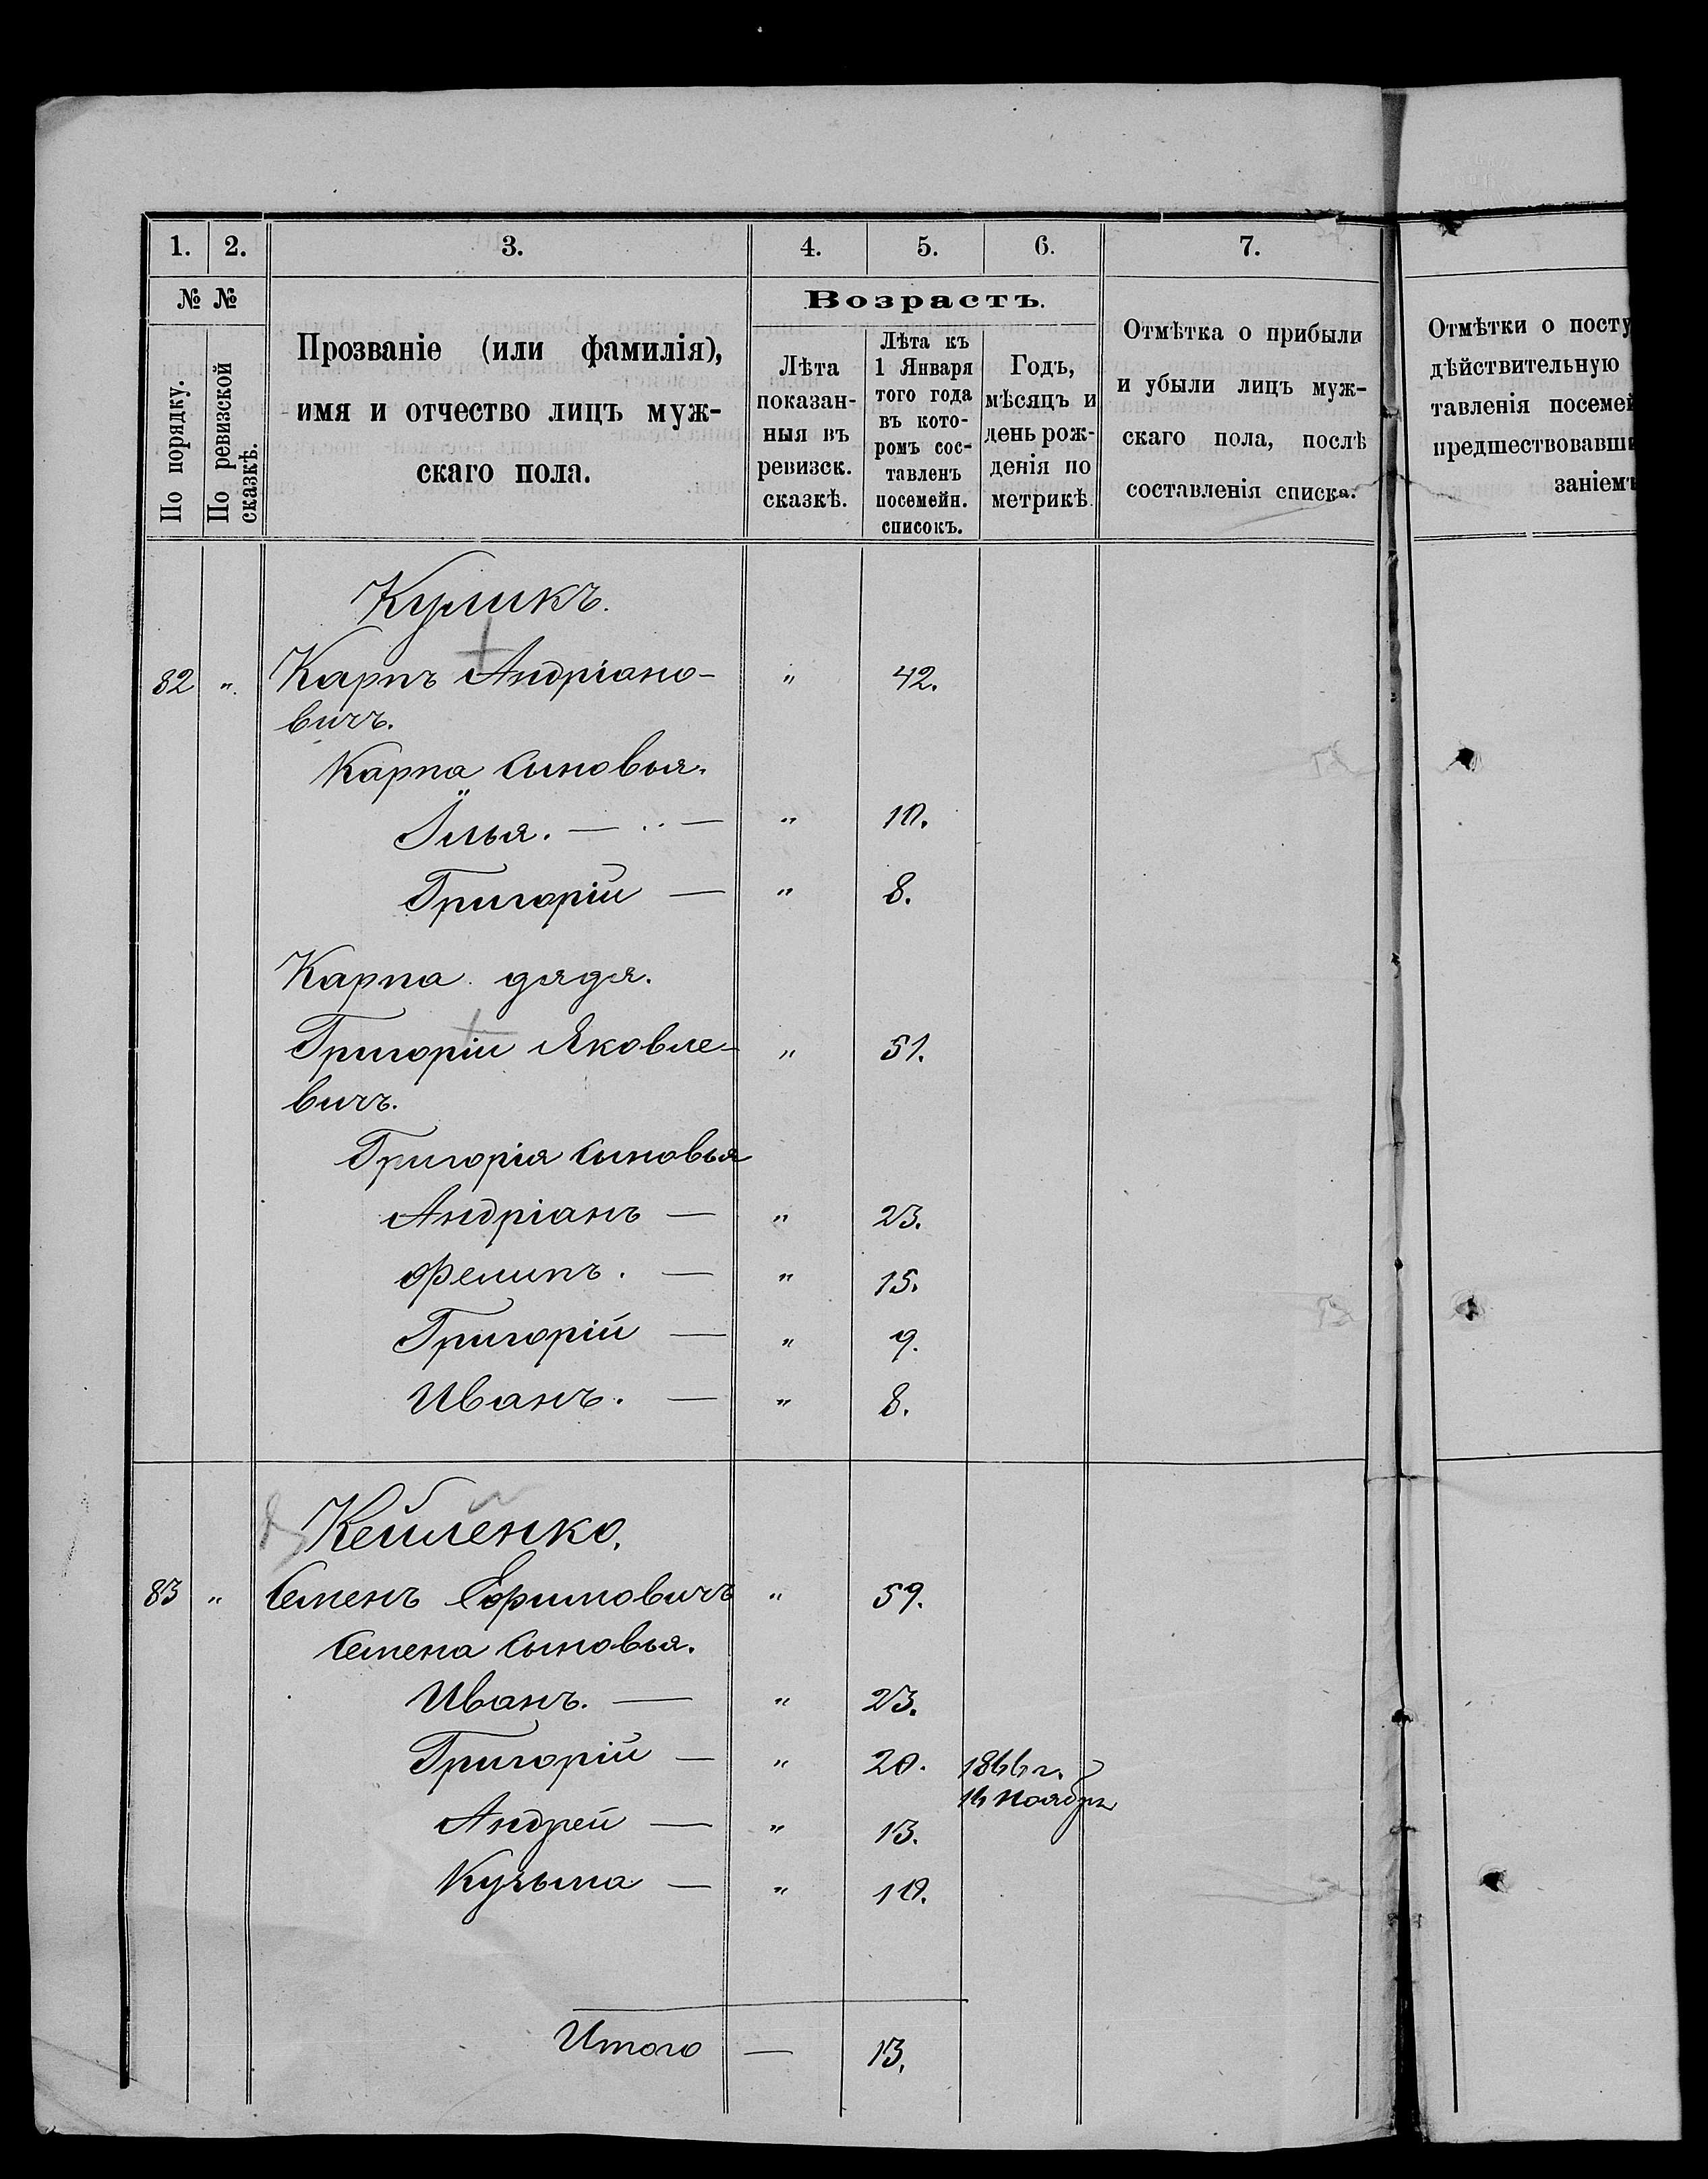 1. 2. 3. 4. 5. 6. 7.
№ № Возрастъ.
По порядку.
По ревизской сказкѣ.
Прозваніе (или фамилія),
имя и отчество лицъ муж-
скаго пола.
Лѣта
показан-
ныя въ
ревизск.
сказкѣ.
Лѣта къ
1 Января
того года
въ кото-
ромъ сос-
тавленъ
посемейн.
списокъ.
Годъ,
мѣсяцъ и
день рож-
денія по
метрикѣ.
Отмѣтка о прибыли
и убыли лицъ муж-
скаго пола, послѣ
составленія списка.
Отмѣтки о посту
дѣйствительную
тавленія посемей
предшествовавши
заніемъ
Куликъ.
82 „ Карпъ Андріано- „ 42.
вичъ.
Карпа сыновья.
Илья. — „ — „ 10.
Григорій — „ 8.
Карпа дядя.
Григорій Яковле- „ 51.
вичъ.
Григорія сыновья
Андріанъ — „ 23.
Фелипъ. — „ 15.
Григорій — „ 9.
Иванъ. — „ 8.
Кейленко.
83 „ Семенъ Ефимовичъ „ 59.
Семена сыновья.
Иванъ. — „ 23.
Григорій — „ 20. 1866 г.
16 Ноября
Андрей — „ 13.
Кузьма — „ 10.
Итого — 13.